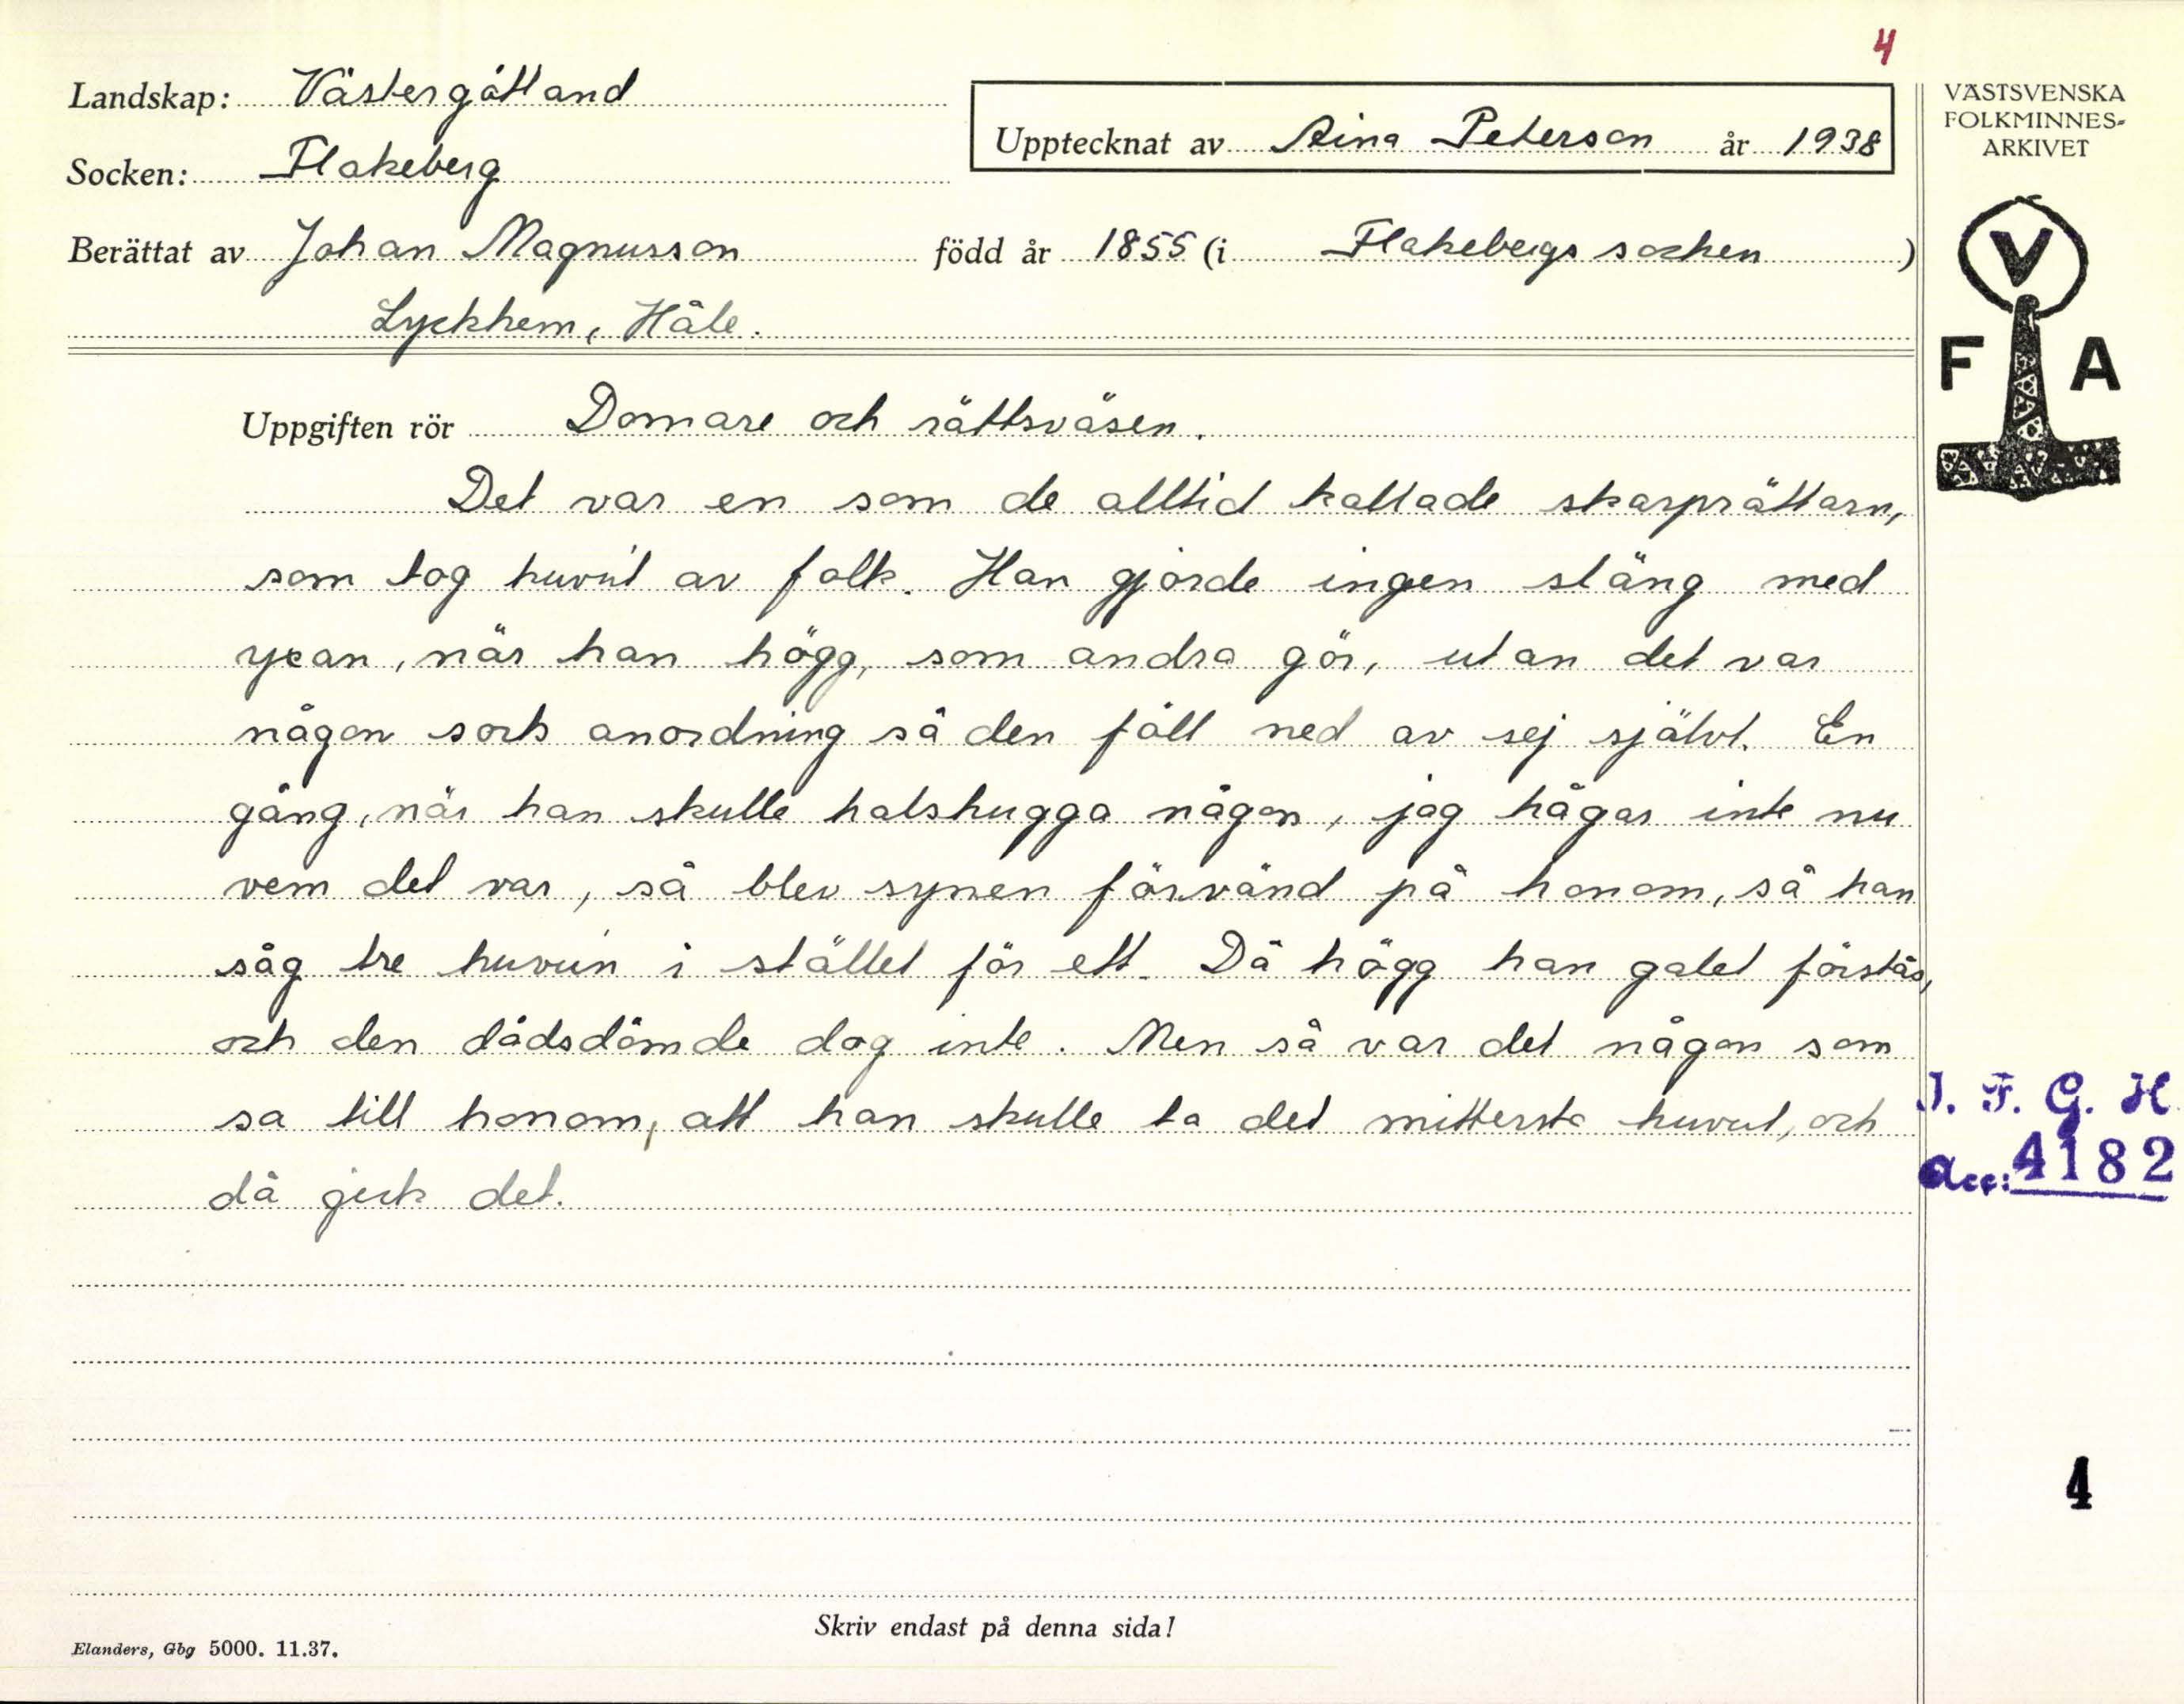 4
Landskap: Västergötland
VÄSTSVENSKA
FOLKMINNES-
ARKIVET
Upptecknat av Aina Peterson år 1938
Socken: Flakeberg
Berättat av Johan Magnusson född år 1855 (i Flakebergs socken)
Lyckhem, Håle.
V
F A
Uppgiften rör Domare och rättsväsen.
Det var en som de alltid kallade skarprättarn,
som tog huvut av folk. Han gjorde ingen släng med
yxan, när han högg, som andra gör, utan det var
någon sorts anordning så den föll ned av sej självt. En
gång, när han skulle halshugga någon, jag hågar inte nu
vem det var, så blev synen förvänd på honom, så han
såg tre huvun i stället för ett. Då högg han galet förstås,
och den dödsdömde dog inte. Men så var det någon som
sa till honom, att han skulle ta det mittersta huvut, och
då gick det.
I. F. G. H.
Acc: 4182
4
Skriv endast på denna sida!
Elanders, Gbg 5000. 11.37.